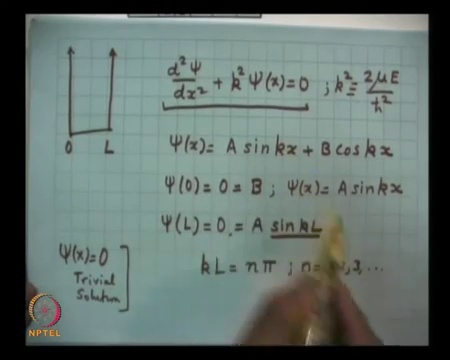 d²Ψ/dx² + k²Ψ(x) = 0 ; k² = 2μE/ħ²
0 L
Ψ(x) = A sin kx + B cos kx
Ψ(0) = 0 = B ; Ψ(x) = A sin kx
Ψ(L) = 0 = A sin kL
Ψ(x) = 0
Trivial
Solution
kL = nπ ; n = 2, 3, ...
NPTEL